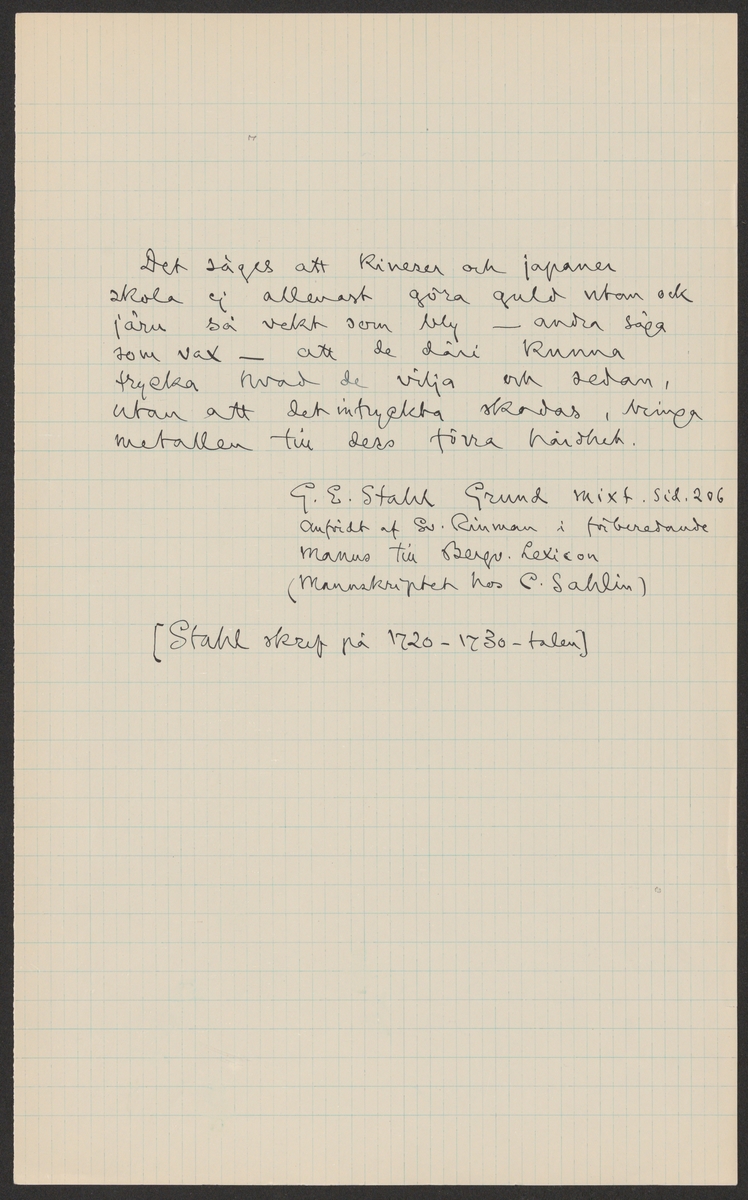 Det säges att Kineser och japaner
skola ej allenast göra guld utan ock
järn så vekt som bly — andra säga
som vax — att de däri kunna
trycka hvad de vilja och sedan,
utan att det intryckta skadas, bringa
metallen till dess förra hårdhet.
G. E. Stahl Grund mixt. Sid. 206
Anfördt af Sv. Rinman i förberedande
manus till Bergv. Lexicon
(Manuskriptet hos C. Sahlin)
[Stahl skref på 1720-1730-talen]